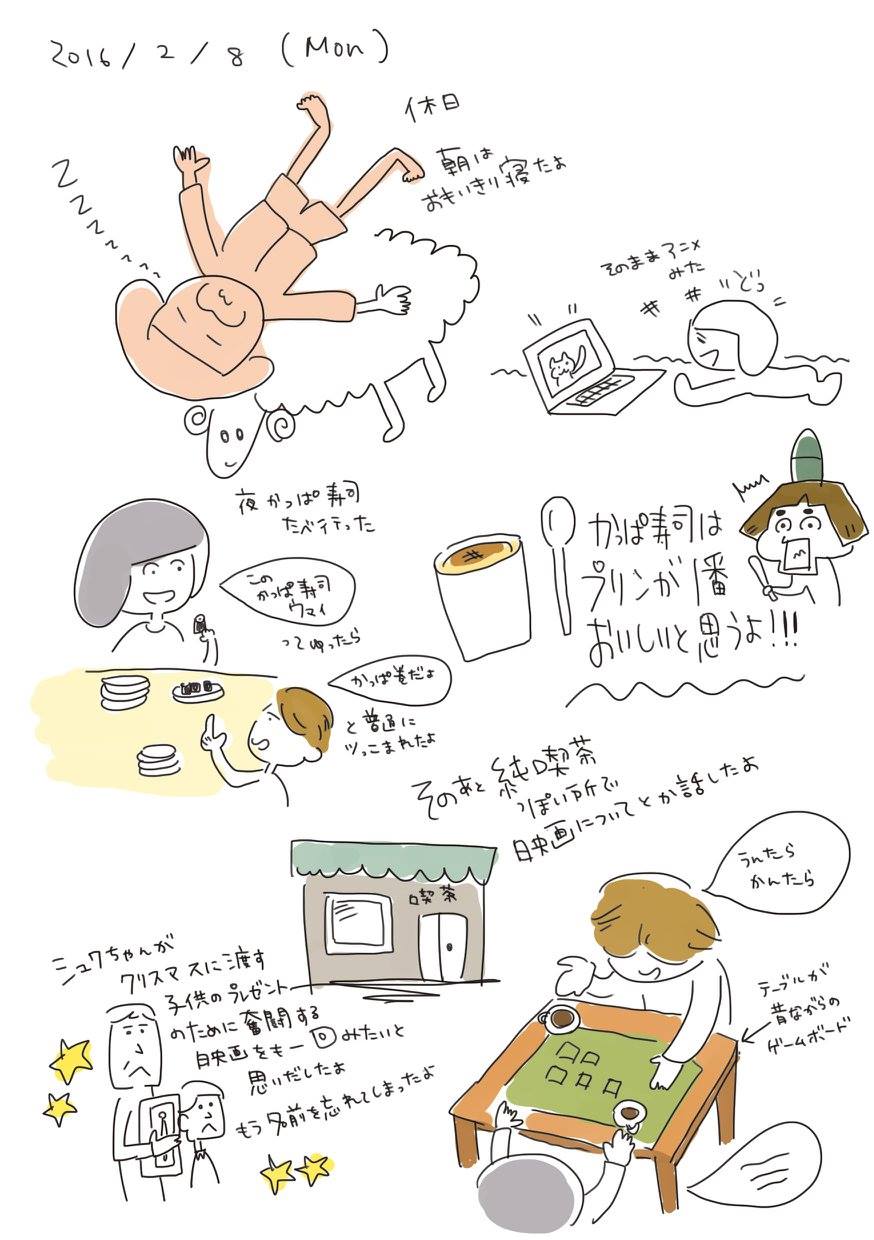 2016/2/8 (Mon)
休日
朝は
おもいきり寝たよ
ZZZZ
そのままアニメ
みた
どっ
夜かっぱ寿司
たべ行った
この
かっぱ寿司
ウマイ
ってゆったら
かっぱ巻だよ
と普通に
ツっこまれたよ
かっぱ寿司は
プリンが1番
おいしいと思うよ!!!
そのあと純喫茶
っぽい所で
映画についてとか話したよ
喫茶
うんたら
かんたら
テーブルが
昔ながらの
ゲームボード
シュワちゃんが
クリスマスに渡す
子供のプレゼント
のために奮闘する
映画をも一回みたいと
思いだしたよ
もう名前を忘れてしまったよ